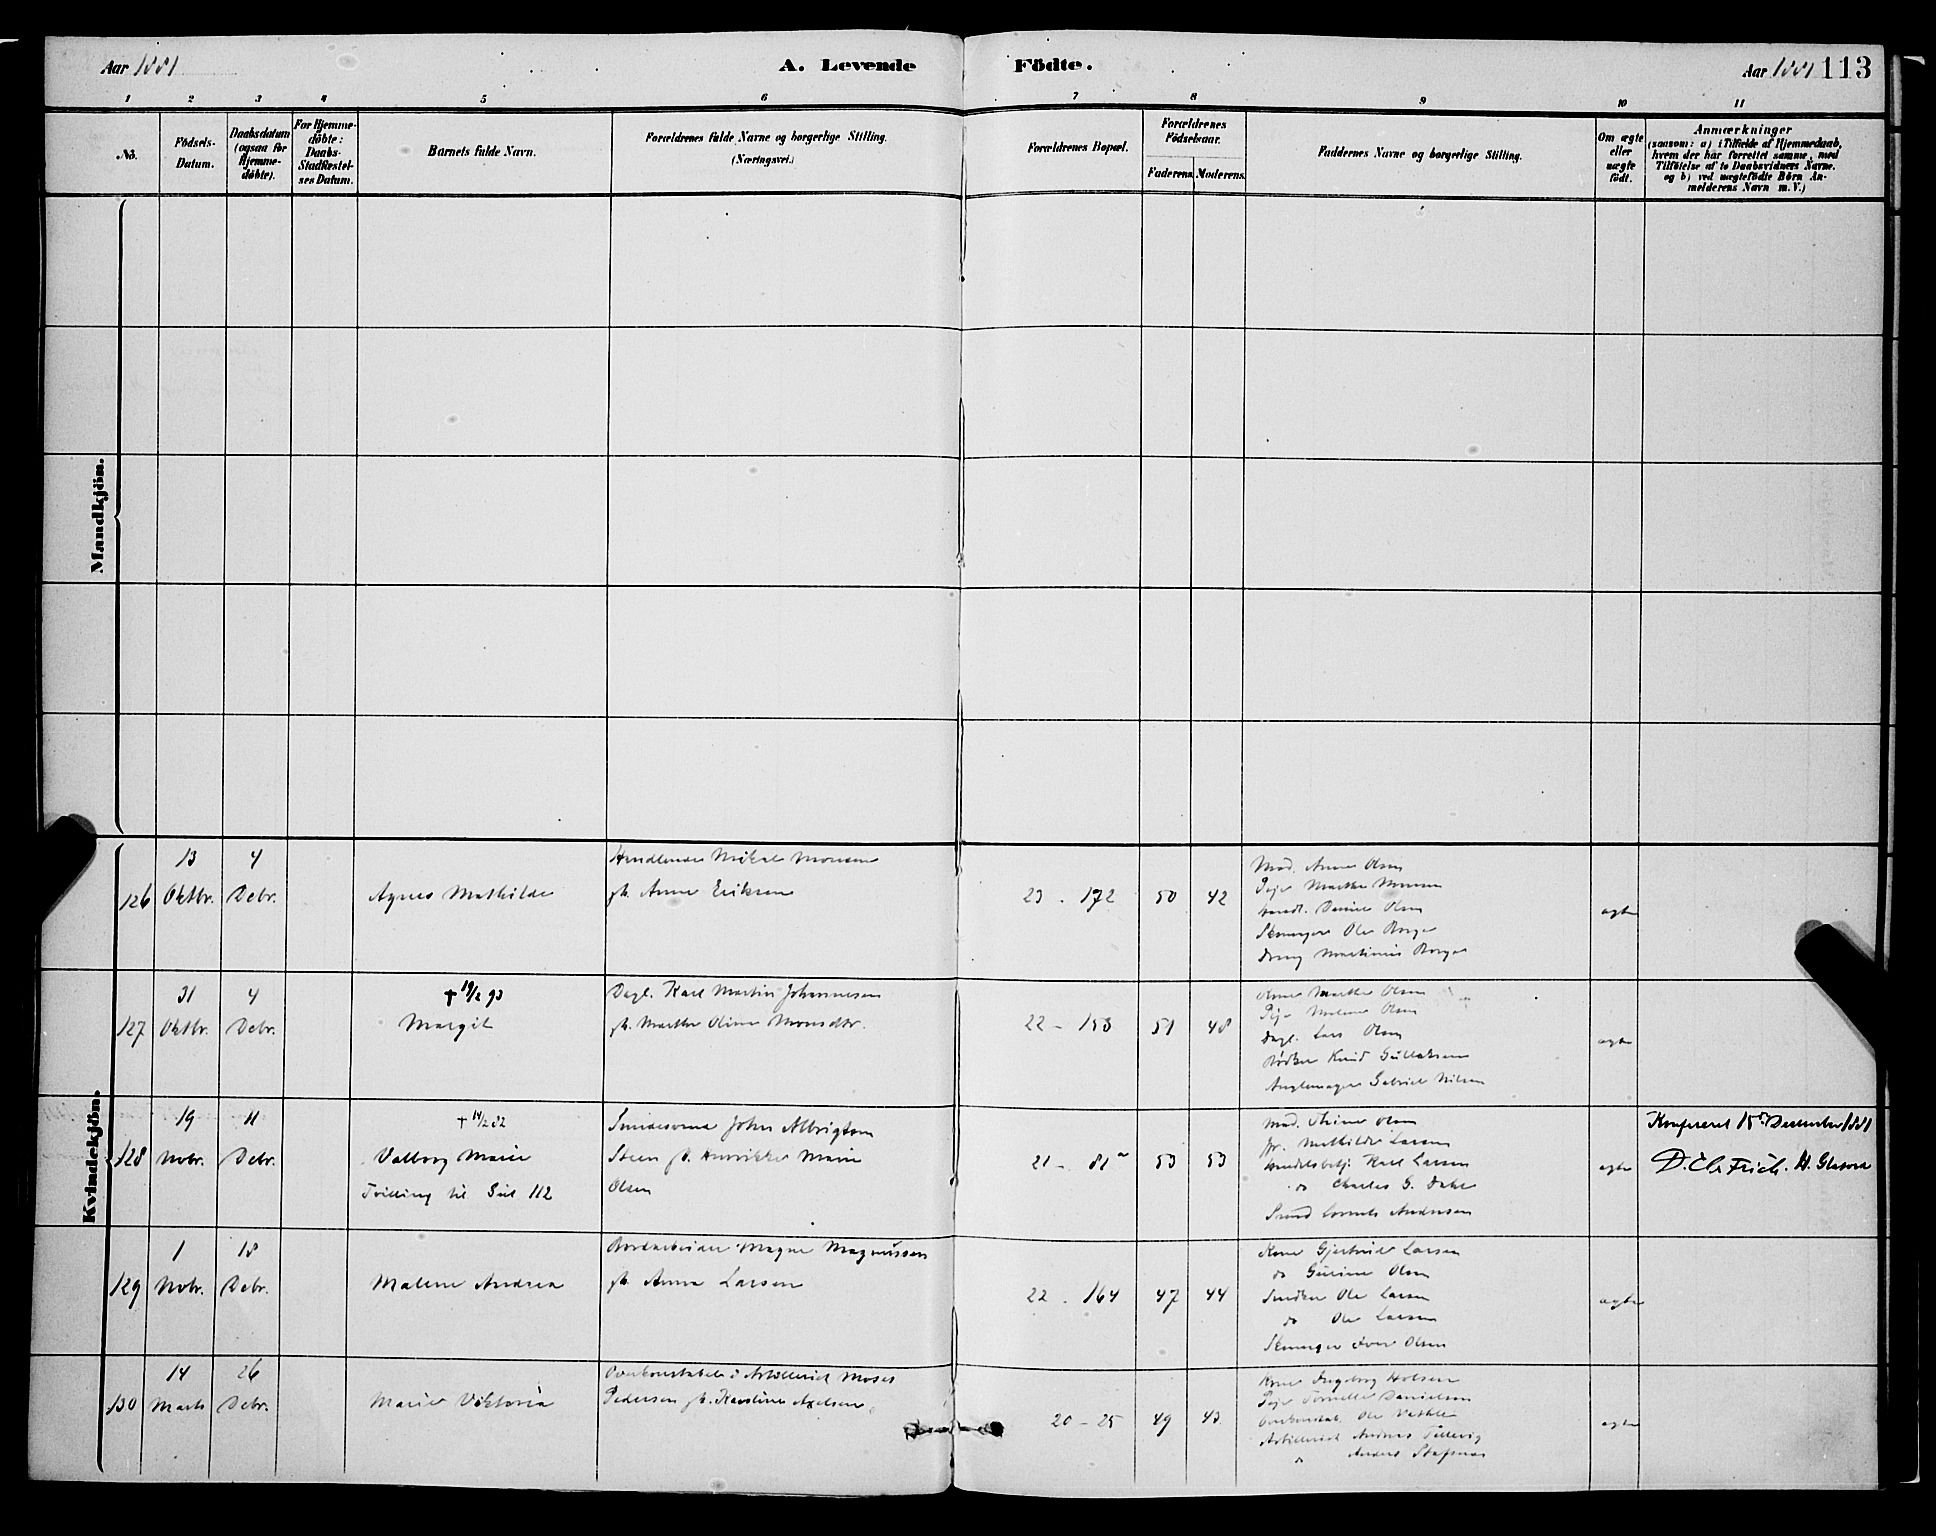 Aar 1881
A. Levende Födte.
Aar 1881 113
1 2 3 4 5 6 7 8 9 10 11
No.
Födsels-
Datum.
Daabsdatum
(ogsaa for
Hjemme-
döbte).
For Hjemme-
döbte:
Daabs-
Stadfæstel-
ses Datum.
Barnets fulde Navn.
Forældrenes fulde Navne og borgerlige Stilling.
(Næringsvei.)
Forældrenes Bopæl.
Forældrenes
Födselsaar.
Faderens. Moderens.
Faddernes Navne og borgerlige Stilling.
Om ægte
eller
uægte
födt.
Anmærkninger
(saasom: a) i Tilfælde af Hjemmedaab,
hvem der har forrettet samme, med
Tilföielse af to Daabsvidners Navne.
og b) ved uægtefödte Börn An-
melderens Navn m.V.)
Mandkjön.
Kvindekjön.
126
13
Oktbr.
4
Debr.
Agnes Mathilde
Handlende Mikal Monsen
gk. Anne Eriksen
23 . 172
50
42
Mad. Anne Olsen
Pige Marthe Monsen
Handl. Daniel Olsen
Skomager Ole Borge
Martinius Borge
ægte
127
31
Oktbr.
4
Debr.
† 19/2 93
Margit
Dagl. Karl Martin Johannesen
gk. Marthe Oline Monsdtr.
22 - 153
51
48
Kone Marthe Olsen
Pige Malene Olsen
Dagl. Lars Olsen
Bödker Knud Gullaksen
Gabriel Nilsen
ægte
128
19
Nobr.
11
Debr.
† 14/2 82
Valborg Marie
Tvilling til Gut 112
John Albrigtsen
Steen gk. Henrikke Marie
Olsen
21 - 81
53
53
Mad. Oline Olsen
Fr. Mathilde Larsen
Handelsbetj. Karl Larsen
do Charles G. Dahl
Smed Andersen
ægte
Konfereret 15de December 1881
D. Ch. Frich. H. Glatved
129
1
Nobr.
18
Debr.
Malene Andrea
Magne Magnussen
gk. Anna Larsen
22 . 164
47
44
Kone Gjertrude Larsen
do Gurine Olsen
Snedker Ole Larsen
do Ole Larsen
Skomager Iver Olsen
ægte
130
14
Marts
26
Debr.
Marie Viktoria
Overkonstabel i Artilleriet Moses
Pedersen gk. Karoline Axelsen
20 - 25
49
43
Kone Ingeborg Holsen
Pige Danielsen
Overkonstab. Ole
Artillerist Andreas
do Anders
ægte